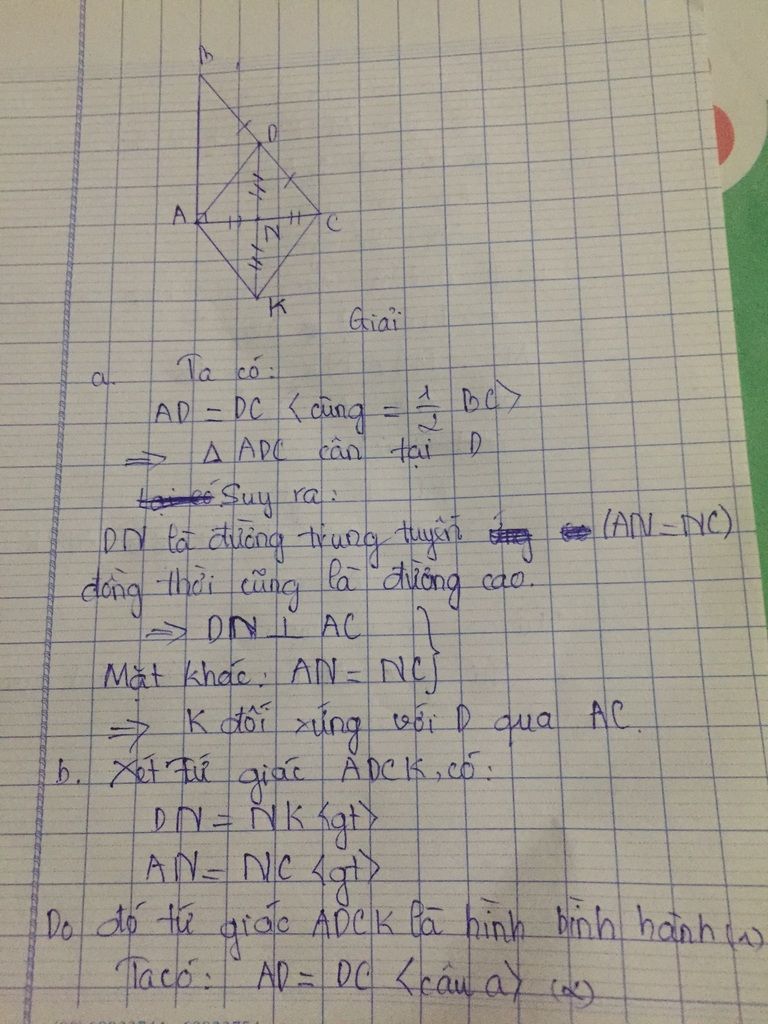 B
D
A
N
C
K
Giải
a. Ta có:
AD = DC <cùng = 1/2 BC>
=> Δ ADC cân tại D
Suy ra:
DN là đường trung tuyến (AN=NC)
đồng thời cũng là đường cao.
=> DN ⊥ AC
Mặt khác: AN = NC }
=> K đối xứng với D qua AC.
b. Xét tứ giác ADCK, có:
DN = NK <gt>
AN = NC <gt>
Do đó tứ giác ADCK là hình bình hành (1)
Ta có: AD = DC <câu a> (2)